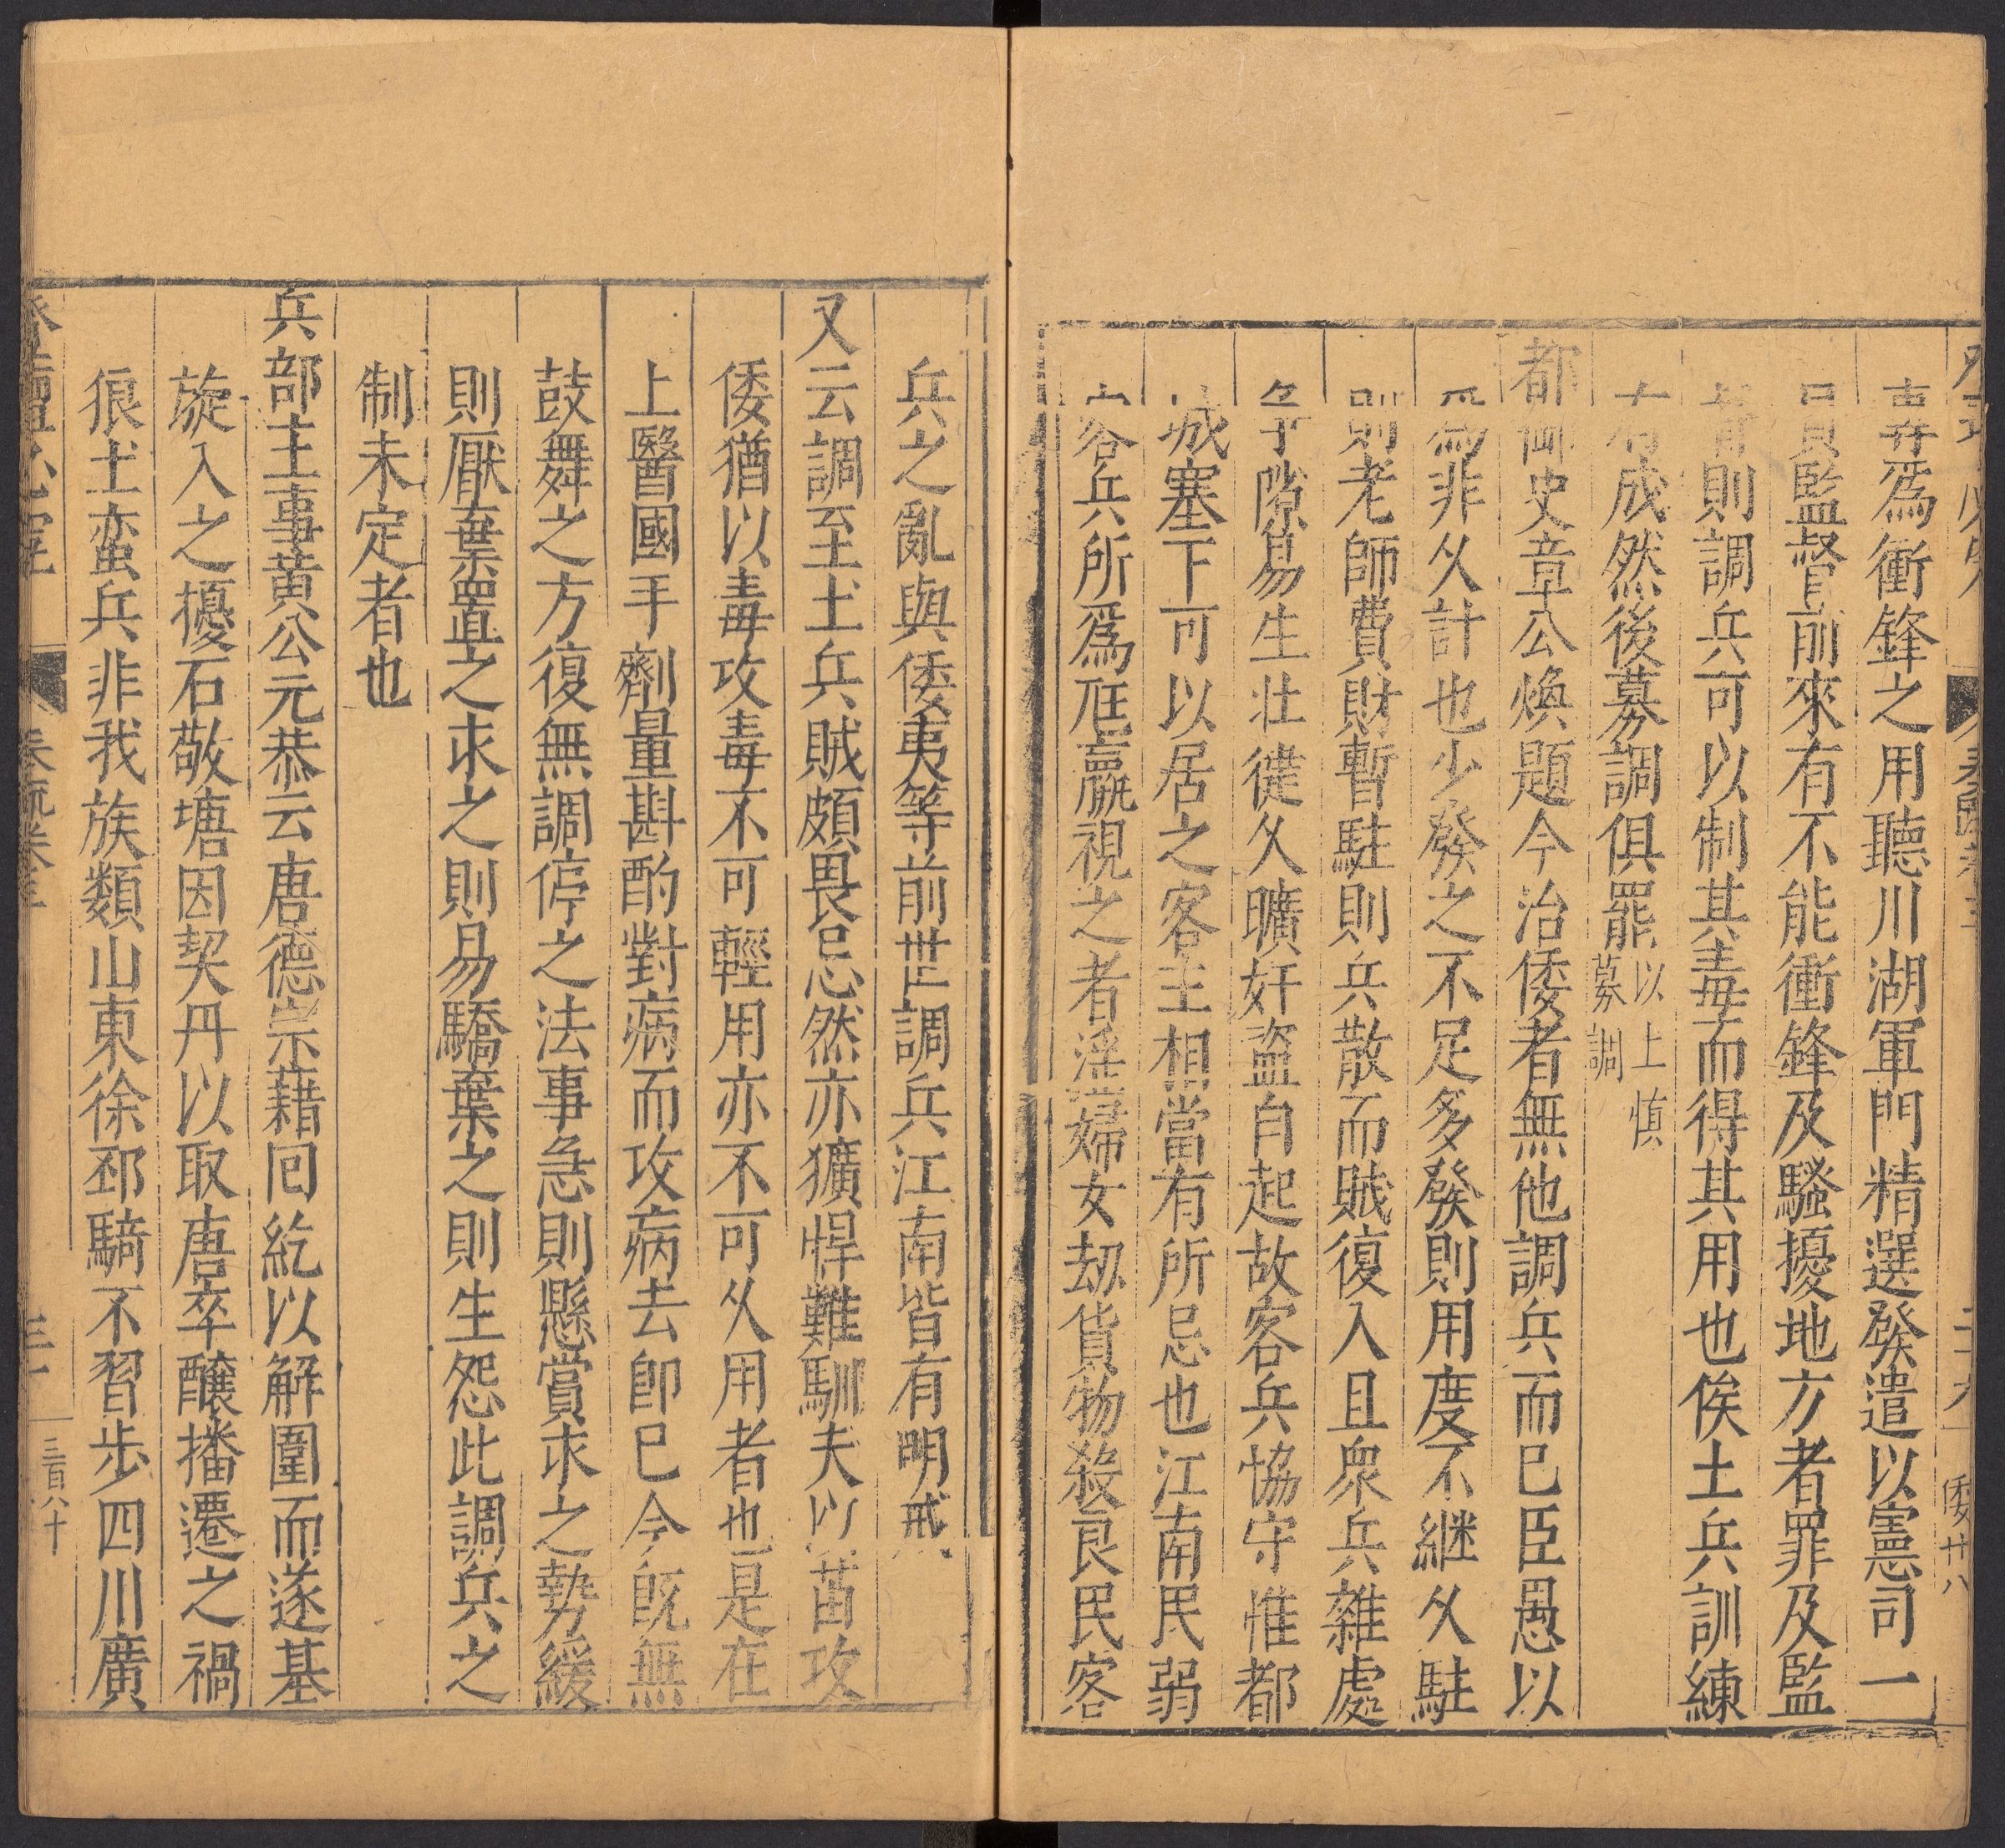 專爲衝鋒之用聽川湖軍門精選發遣以憲司一
員監督前來有不能衝鋒及騷擾地方者罪及監
者則調兵可以制其毒而得其用也俟土兵訓練
有成然後募調俱罷以上慎
募調
都御史章公煥題今治倭者無他調兵而已臣愚以
爲非久計也少發之不足多發則用度不継久駐
則老師費財暫駐則兵散而賊復入且衆兵雜處
爭隙易生壯徒久曠奸盜自起故客兵協守惟都
城塞下可以居之客主相當有所忌也江南民弱
客兵所爲尫羸視之者淫婦女刼貨物殺良民客
兵之亂與倭夷等前世調兵江南皆有明戒
又云調至土兵賊頗畏忌然亦獷悍難馴夫以苗攻
倭猶以毒攻毒不可輕用亦不可久用者也是在
上醫國手劑量斟酌對病而攻病去卽已今旣無
鼓舞之方復無調停之法事急則懸賞求之勢緩
則厭棄置之求之則易驕棄之則生怨此調兵之
制未定者也
兵部主事黄公元恭云唐德宗藉囘紇以解圍而遂基
旋入之擾石敬塘因契丹以取唐卒釀播遷之禍
狼土蛮兵非我族類山東徐邳騎不習步四川廣
三百八十